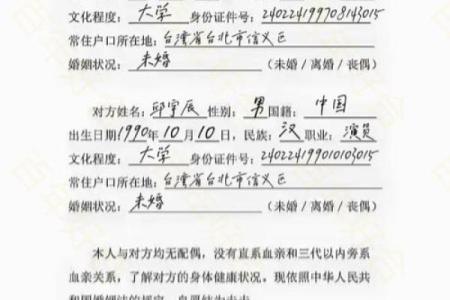 文化程度: 大学 身份证件号: 240224199708143015
常住户口所在地: 台湾省台北市信义区
婚姻状况: 未婚 (未婚/离婚/丧偶)
对方姓名: 邱宇辰 性别: 男 国籍: 中国
出生日期1990年10月10日, 民族: 汉 职业: 演员
文化程度: 大学 身份证件号: 240224199010103015
常住户口所在地: 台湾省台北市信义区
婚姻状况: 未婚 (未婚/离婚/丧偶)
本人与对方均无配偶, 没有直系血亲和三代以内旁系
血亲关系, 了解对方的身体健康状况。现依照中华人民共